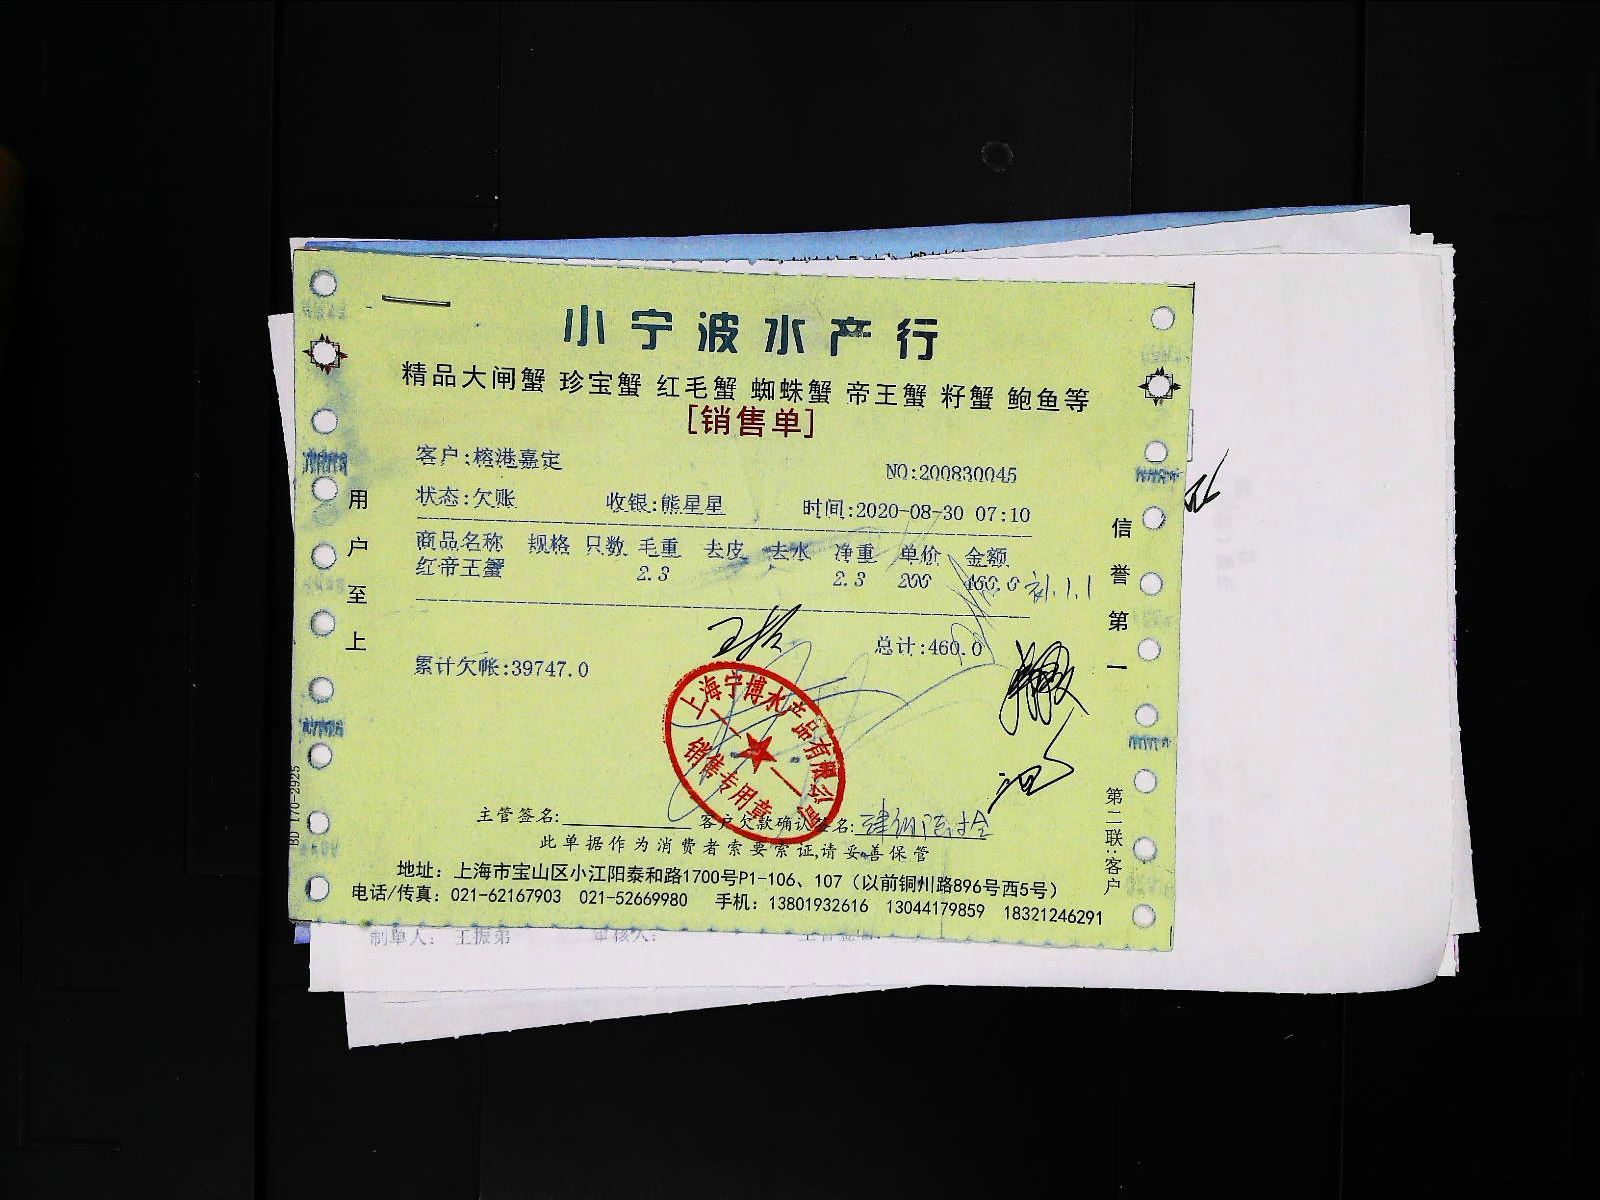 小宁波水产行
精品大闸蟹 珍宝蟹 红毛蟹 蜘蛛蟹 帝王蟹 籽蟹 鲍鱼等
[销售单]
客户:榕港嘉定
NO:200830045
状态:欠账 收银:熊星星 时间:2020-08-30 07:10
商品名称 规格 只数 毛重 去皮 去水 净重 单价 金额
红帝王蟹 2.3 2.3 200 460.0
总计:460.0
累计欠帐:39747.0
上海宁博水产品有限公司
销售专用章
主管签名: 客户欠款确认签名:
此单据作为消费者索要索证,请妥善保管
地址：上海市宝山区小江阳泰和路1700号P1-106、107（以前铜川路896号西5号）
电话/传真：021-62167903 021-52669980 手机：13801932616 13044179859 18321246291
用户至上
信誉第一
第二联:客户
BD 170-2925
制单人： 王振弟 审核人：